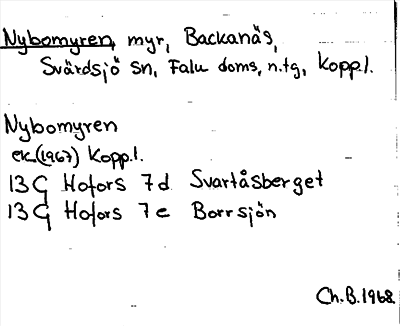 Nybomyren, myr, Backanäs,
Svärdsjö sn, Falu doms. n. tg, Kopp.l.
Nybomyren
ek. (1967) Kopp.l.
13G Hofors 7d Svartåsberget
13G Hofors 7e Borrsjön
Ch.B. 1968